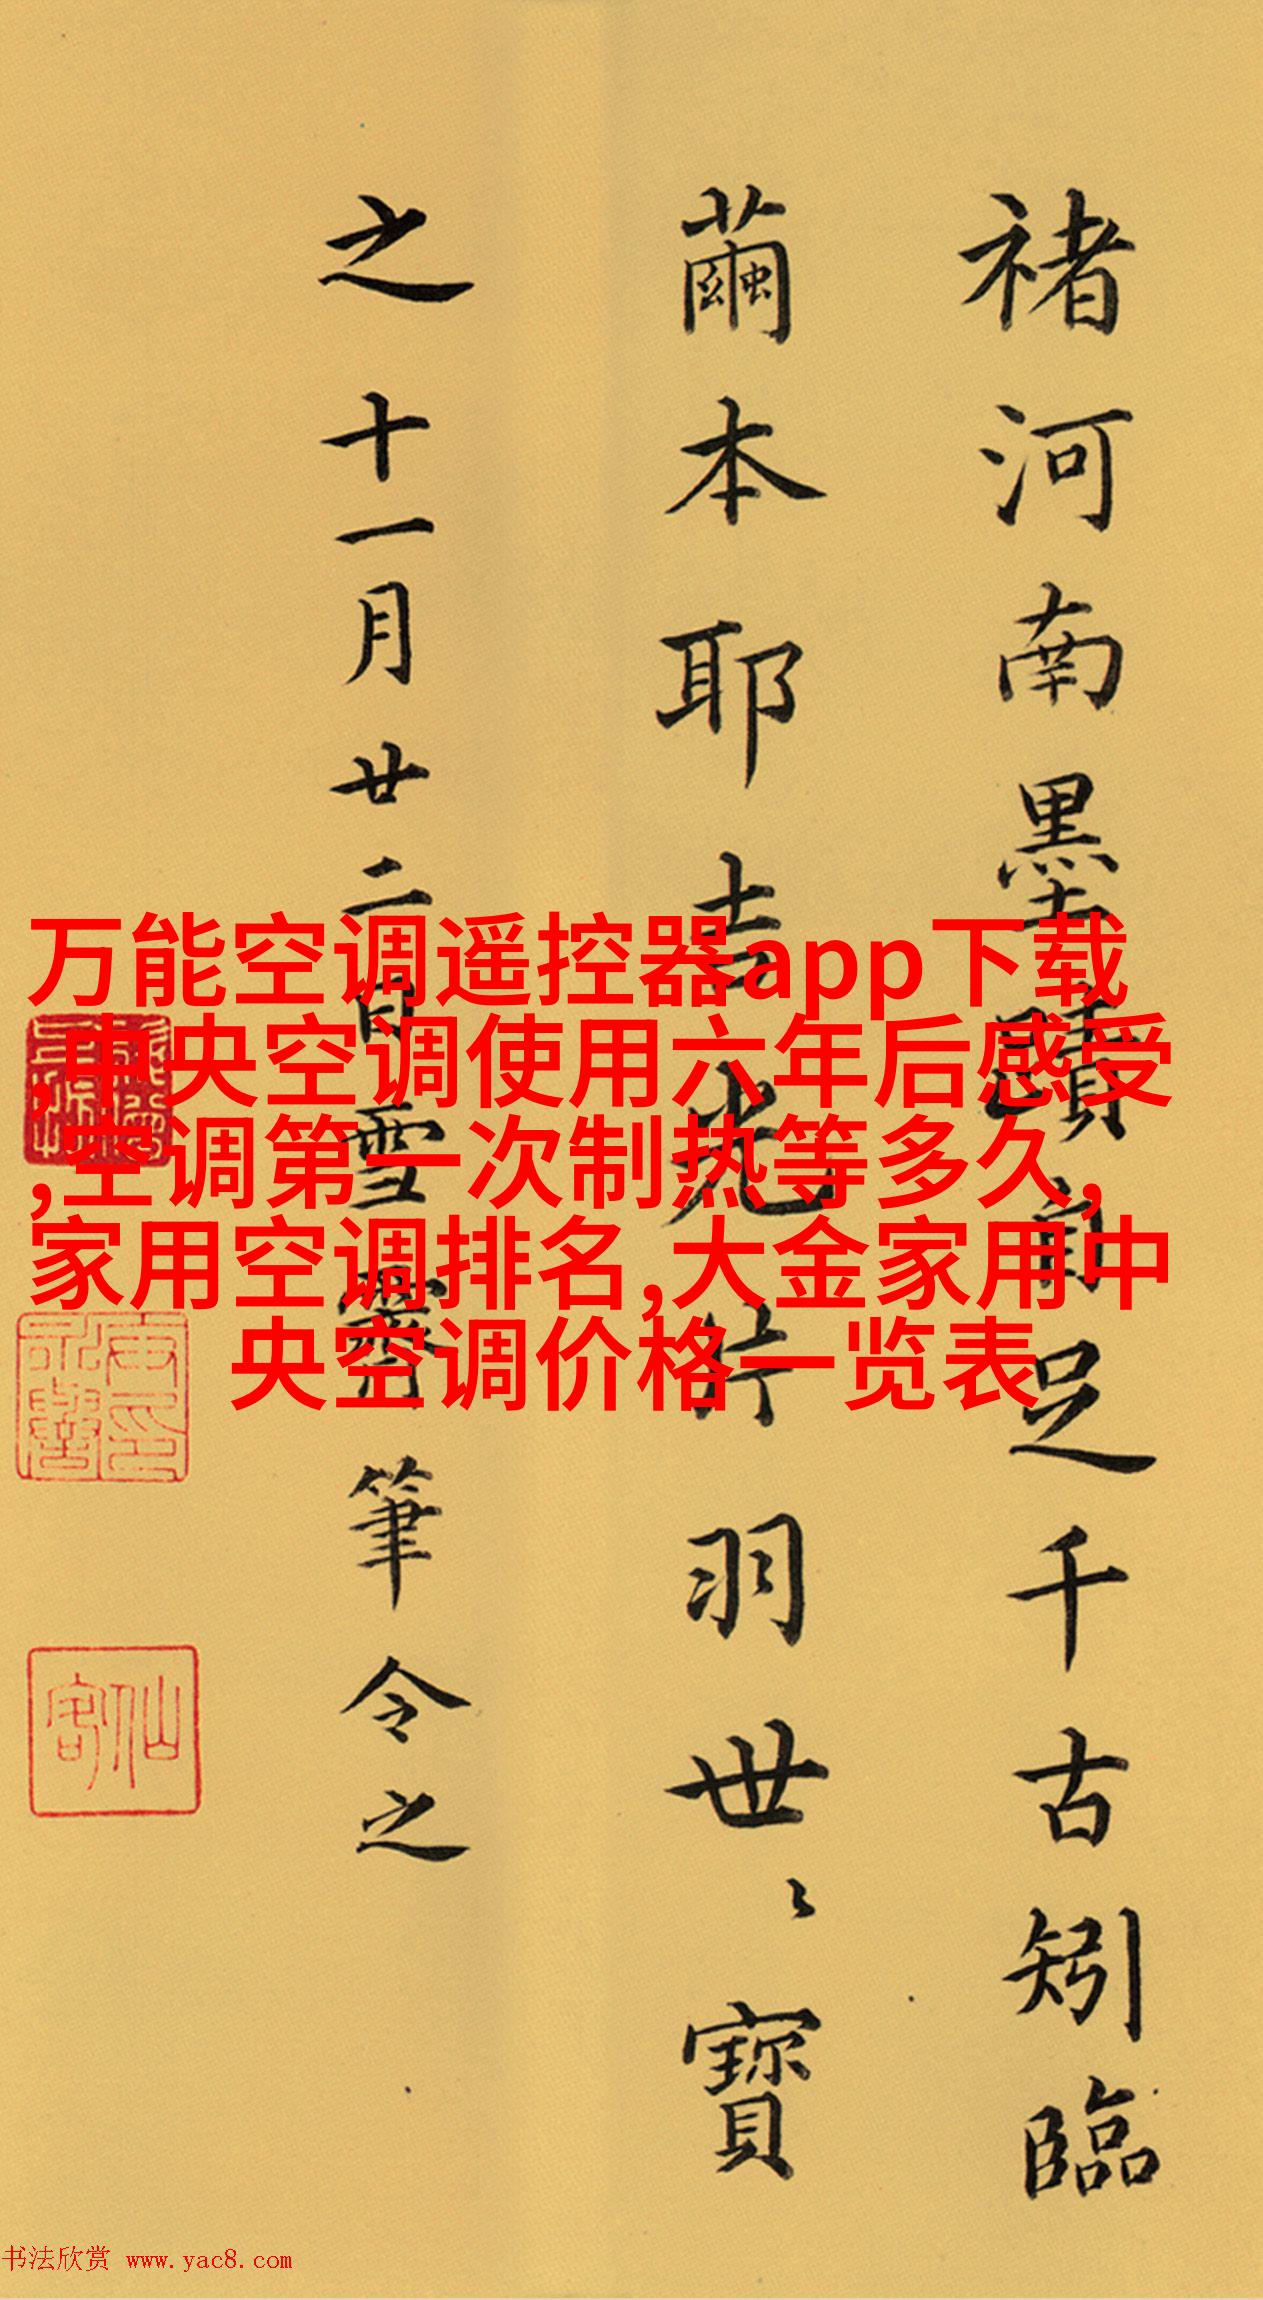 褚河南墨蹟自足千古矧臨
繭本耶吉光片羽世〻寶
之十一月廿二日雪霽筆令之
万能空调遥控器app下载
,中央空调使用六年后感受
,空调第一次制热等多久,
家用空调排名,大金家用中
央空调价格一览表
仙客
书法欣赏 www.yac8.com